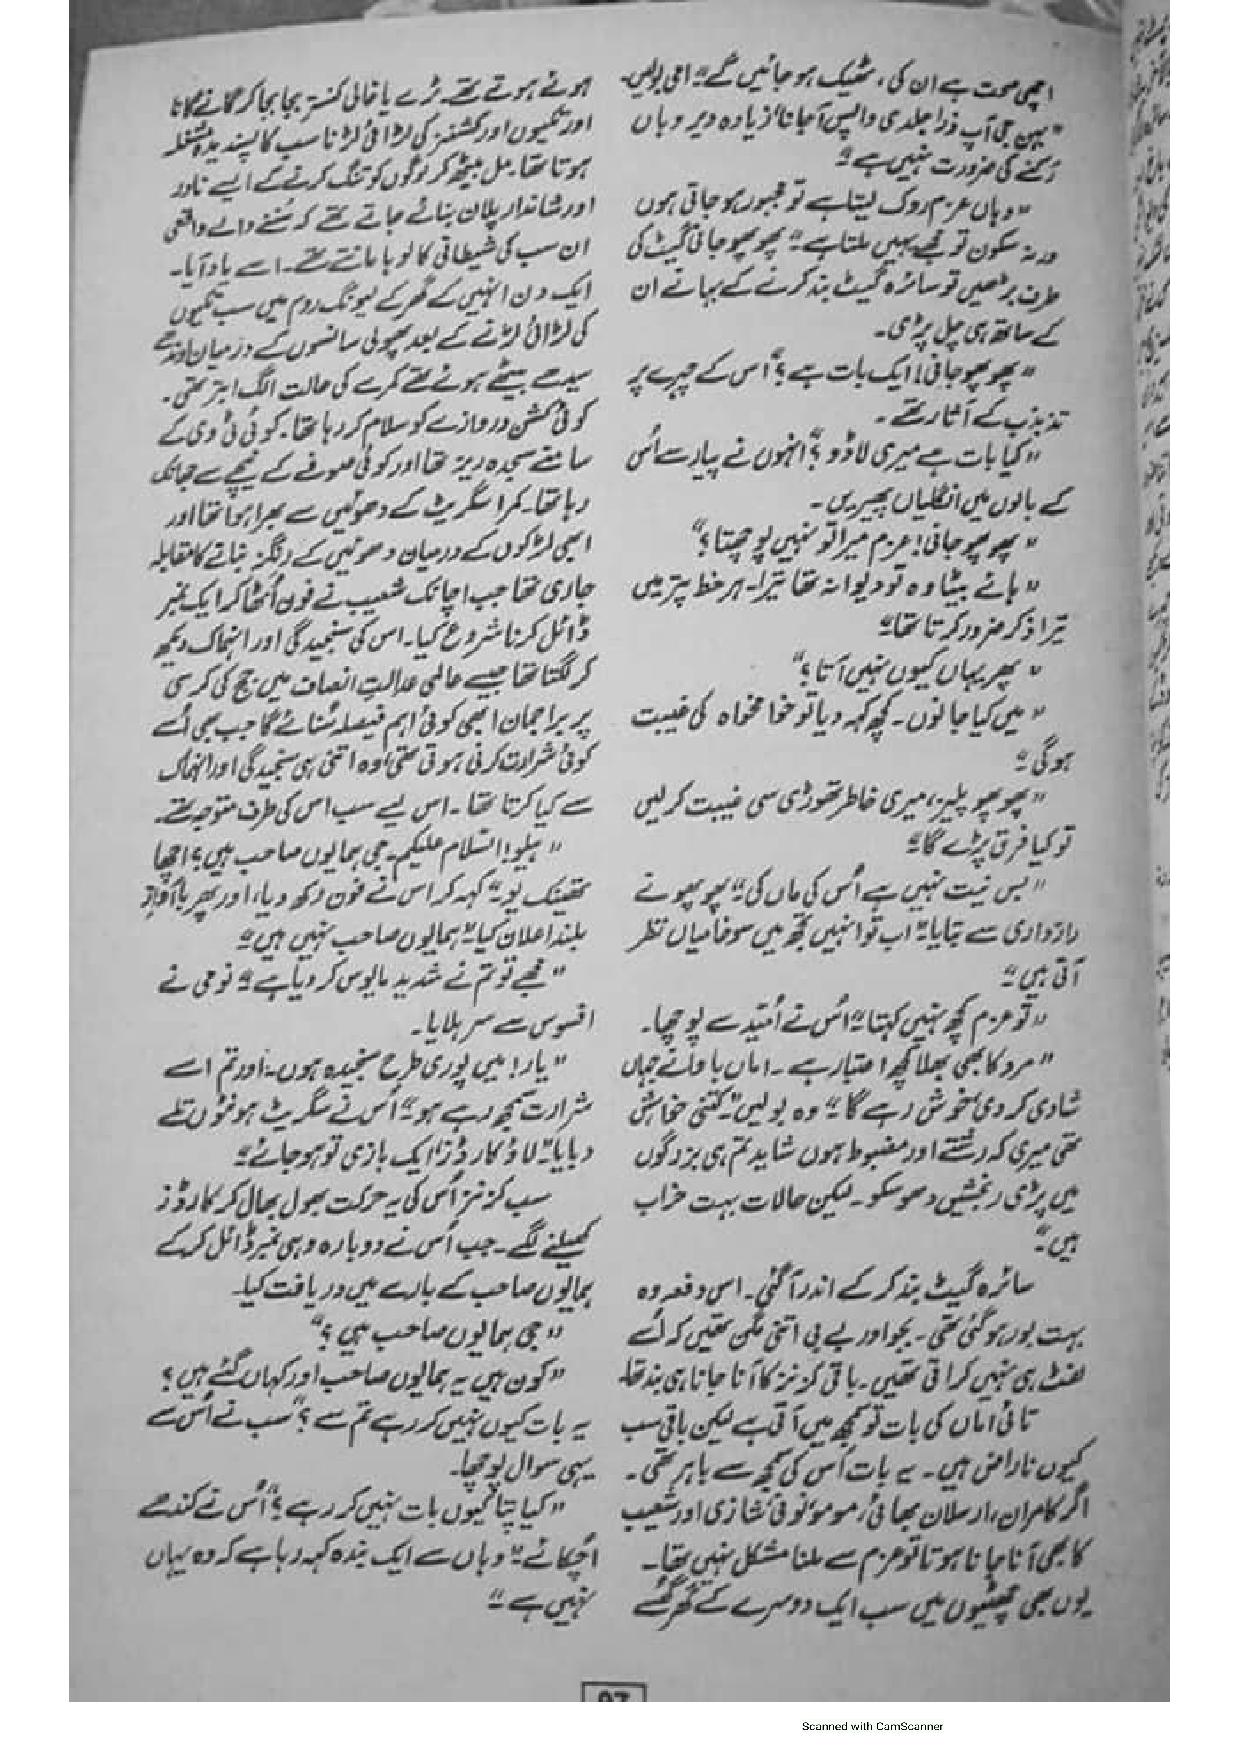 اچھی صحت ہے ان کی، ٹھیک ہو جائیں گے" امی بولیں۔
"بہن جی آپ ذرا جلدی واپس آ جانا، زیادہ دیر وہاں
رکنے کی ضرورت نہیں ہے"
"وہاں عزم روک لیتا ہے تو مجبور ہو جاتی ہوں
ورنہ سکون تو مجھے یہیں ملتا ہے" پھوپھو جانی گیٹ کی
طرف بڑھیں تو سائرہ گیٹ بند کرنے کے بہانے ان
کے ساتھ ہی چل پڑی۔
"پھوپھو جانی! ایک بات ہے؟" اس کے چہرے پر
تذبذب کے آثار تھے۔
"کیا بات ہے میری لاڈو؟" انہوں نے پیار سے اُس
کے بالوں میں انگلیاں پھیریں۔
"پھوپھو جانی! عزم میرا تو نہیں پوچھتا؟"
"ہائے بیٹا وہ تو دیوانہ تھا تیرا۔ ہر خط پتر میں
تیرا ذکر ضرور کرتا تھا"
"پھر یہاں کیوں نہیں آتا؟"
"میں کیا جانوں۔ کچھ کہہ دیا تو خوامخواہ کی غیبت
ہو گی"
"پھوپھو پلیز، میری خاطر تھوڑی سی غیبت کر لیں
تو کیا فرق پڑے گا"
"بس نیت نہیں ہے اُس کی ماں کی" پھوپھو نے
رازداری سے بتایا" اب تو انہیں تجھ میں سو خامیاں نظر
آتی ہیں"
"تو عزم کچھ نہیں کہتا" اُس نے اُمید سے پوچھا۔
"مرد کا بھی بھلا کچھ اعتبار ہے۔ اماں باوا نے جہاں
شادی کر دی، خوش رہے گا" وہ بولیں" کتنی خواہش
تھی میری کہ رشتے اور مضبوط ہوں شاید تم ہی بزرگوں
میں پڑی رنجشیں دھو سکو۔ لیکن حالات بہت خراب
ہیں"
سائرہ گیٹ بند کر کے اندر آ گئی۔ اس دفعہ وہ
بہت بور ہو گئی تھی۔ بجو اور بے بی اتنی مگن تھیں کہ اُسے
لفٹ ہی نہیں کراتی تھیں۔ باقی کزنز کا آنا جانا ہی بند تھا۔
تائی اماں کی بات تو سمجھ میں آتی ہے لیکن باقی سب
کیوں ناراض ہیں۔ یہ بات اُس کی سمجھ سے باہر تھی۔
اگر کامران، ارسلان بھائی، مومو، نوفی، شازی اور شعیب
کا بھی آنا جانا ہوتا تو عزم سے ملنا مشکل نہیں تھا۔
یوں بھی چھٹیوں میں سب ایک دوسرے کے گھر گئے
ہوئے ہوتے تھے۔ ٹرے یا خالی کنستر بجا بجا کر گانے گانا
اور تکیوں اور کشنز کی لڑائی لڑنا سب کا پسندیدہ مشغلہ
ہوتا تھا۔ مل بیٹھ کر لوگوں کو تنگ کرنے کے ایسے نادر
اور شاندار پلان بنائے جاتے تھے کہ سُننے والے واقعی
ان سب کی شیطانی کا لوہا مانتے تھے۔ اسے یاد آیا۔
ایک دن انہیں کے گھر کے لیونگ روم میں سب تکیوں
کی لڑائی لڑنے کے بعد پھولی سانسوں کے درمیان اوندھے
سیدھے بیٹھے ہوئے تھے کمرے کی حالت الگ ابتر تھی۔
کوئی کشن دروازے کو سلام کر رہا تھا۔ کوئی ٹی وی کے
سامنے سجدہ ریز تھا اور کوئی صوفے کے نیچے سے جھانک
رہا تھا۔ کمرا سگریٹ کے دھوئیں سے بھرا ہوا تھا اور
ابھی لڑکوں کے درمیان دھوئیں کے رنگز بنانے کا مقابلہ
جاری تھا جب اچانک شعیب نے فون اُٹھا کر ایک نمبر
ڈائل کرنا شروع کیا۔ اس کی سنجیدگی اور انہماک دیکھ
کر لگتا تھا جیسے عالمی عدالتِ انصاف میں جج کی کرسی
پر براجمان ابھی کوئی اہم فیصلہ سُنائے گا جب بھی اُسے
کوئی شرارت کرنی ہوتی تھی، وہ اتنی ہی سنجیدگی اور انہماک
سے کیا کرتا تھا۔ اس لیے سب اس کی طرف متوجہ تھے۔
"ہیلو! السّلام علیکم۔ جی ہمایوں صاحب ہیں؟ اچھا
تھینک یو" کہہ کر اس نے فون رکھ دیا، اور پھر با آوازِ
بلند اعلان کیا" ہمایوں صاحب نہیں ہیں"
"مجھے تو تم نے شدید مایوس کر دیا ہے" نوفی نے
افسوس سے سر ہلایا۔
"یار! میں پوری طرح سنجیدہ ہوں۔ اور تم اسے
شرارت سمجھ رہے ہو" اُس نے سگریٹ ہونٹوں تلے
دبایا" لاؤ کارڈز ایک بازی تو ہو جائے"
سب کزنز اُس کی یہ حرکت بھول بھال کر کارڈز
کھیلنے لگے۔ جب اُس نے دوبارہ وہی نمبر ڈائل کر کے
ہمایوں صاحب کے بارے میں دریافت کیا۔
"جی ہمایوں صاحب ہیں؟"
"کون ہیں یہ ہمایوں صاحب اور کہاں گئے ہیں؟
یہ بات کیوں نہیں کر رہے تم سے؟" سب نے اُس سے
یہی سوال پوچھا۔
"کیا پتا کیوں بات نہیں کر رہے؟" اُس نے کندھے
اُچکائے" وہاں سے ایک بندہ کہہ رہا ہے کہ وہ یہاں
نہیں ہے"
97
Scanned with CamScanner